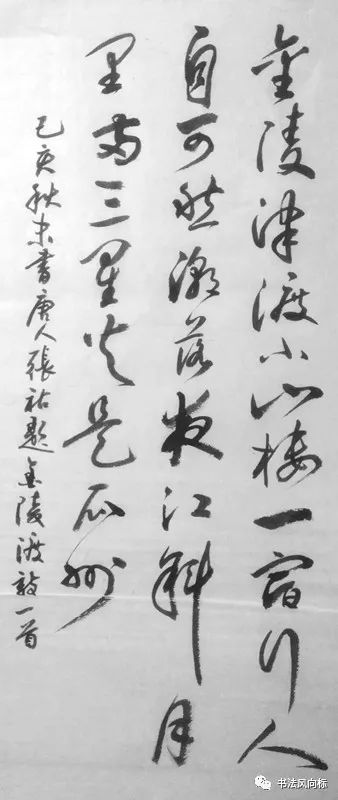 金陵津渡小山楼一宿行人
自可愁潮落夜江斜月
里两三星火是瓜州
己亥秋末書唐人張祜題金陵渡一首
书法风向标